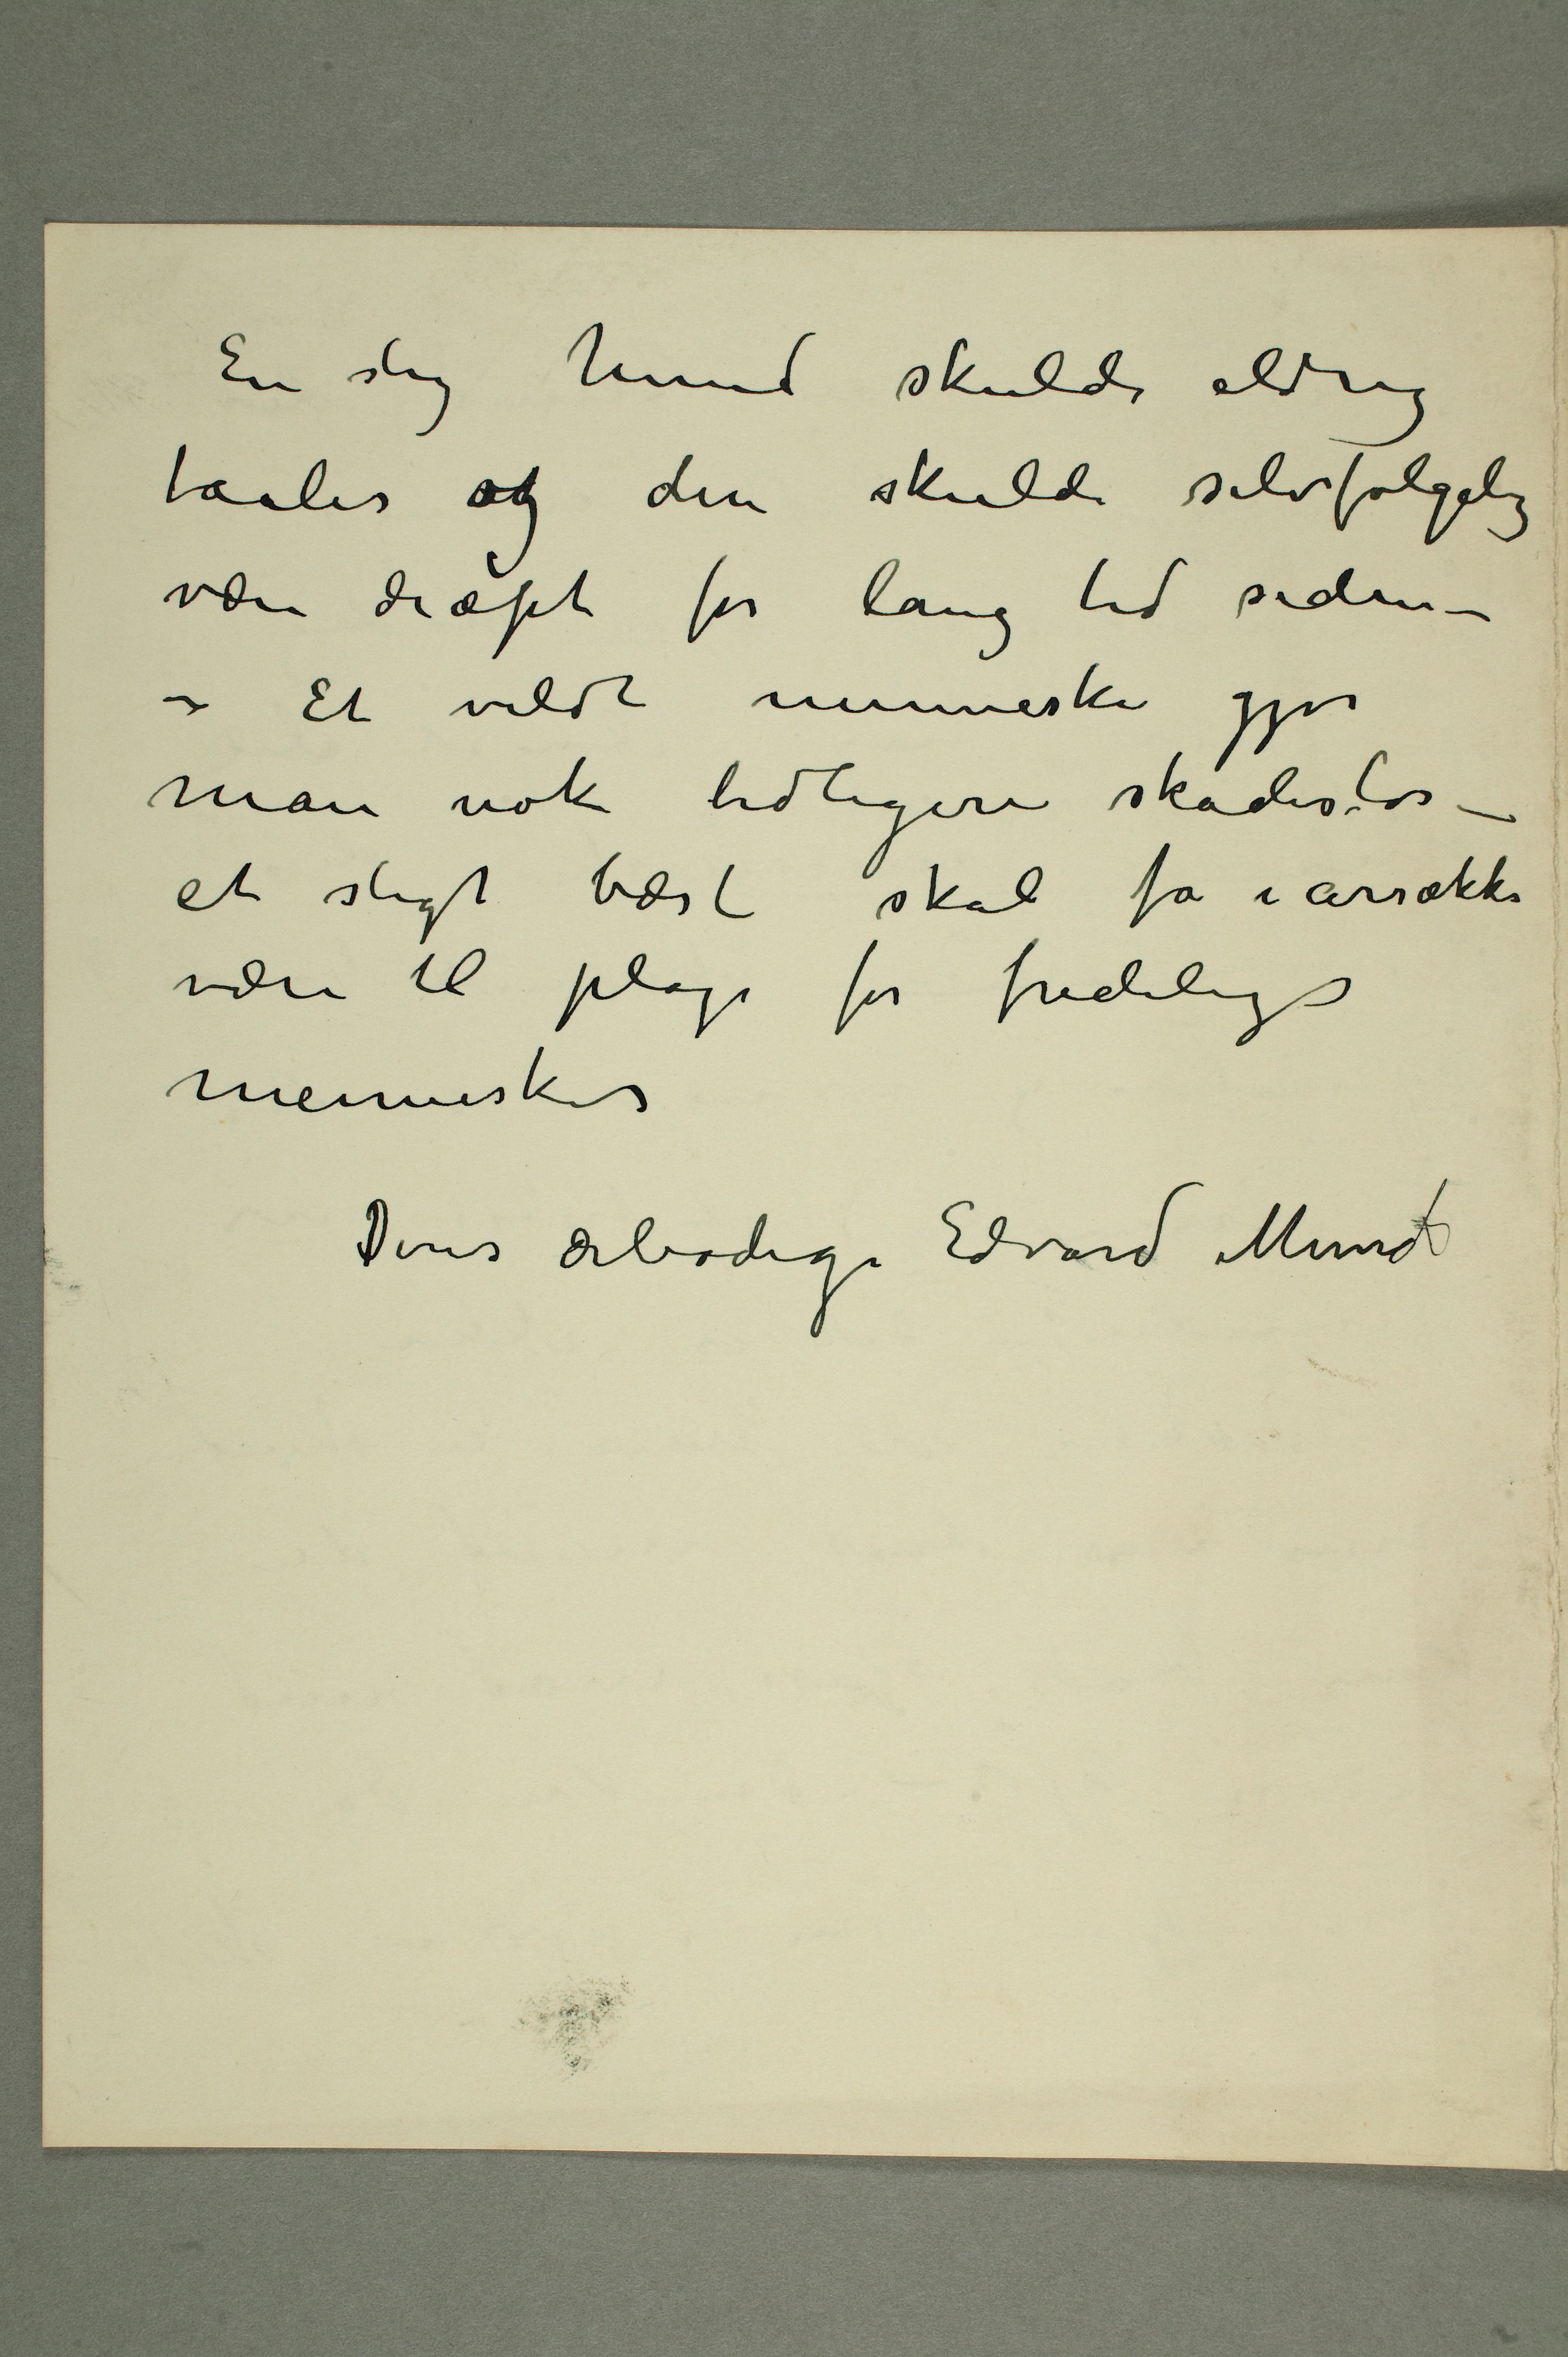 En slig hund skulde aldrig
taales og den skulde selvfølgelig
være dræpt for lang tid siden –
– Et vildt menneske gjør
man nok lidligere skadesløs –
et sligt bæst skal få i årrække
være til plage for fredelige
mennesker
Deres ærbødige Edvard Munch